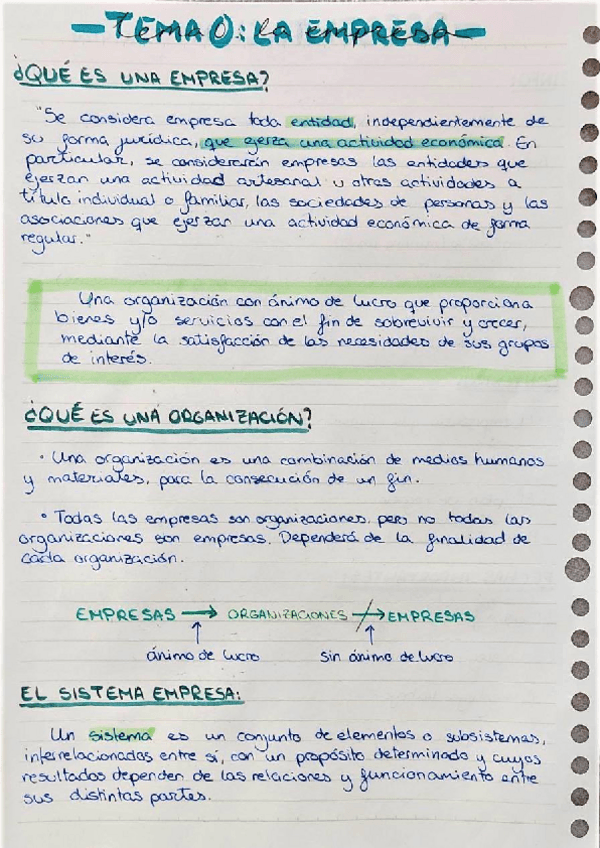 TEMA 0: LA EMPRESA
¿QUÉ ES UNA EMPRESA?
"Se considera empresa toda entidad, independientemente de
su forma jurídica, que ejerza una actividad económica. En
particular, se considerarán empresas las entidades que
ejerzan una actividad artesanal u otras actividades a
título individual o familiar, las sociedades de personas y las
asociaciones que ejerzan una actividad económica de forma
regular."
Una organización con ánimo de lucro que proporciona
bienes y/o servicios con el fin de sobrevivir y crecer,
mediante la satisfacción de las necesidades de sus grupos
de interés.
¿QUÉ ES UNA ORGANIZACIÓN?
· Una organización es una combinación de medios humanos
y materiales, para la consecución de un fin.
· Todas las empresas son organizaciones, pero no todas las
organizaciones son empresas. Dependerá de la finalidad de
cada organización.
EMPRESAS → ORGANIZACIONES ↛ EMPRESAS
ánimo de lucro sin ánimo de lucro
EL SISTEMA EMPRESA:
Un sistema es un conjunto de elementos o subsistemas,
interrelacionados entre sí, con un propósito determinado y cuyos
resultados dependen de las relaciones y funcionamiento entre
sus distintas partes.